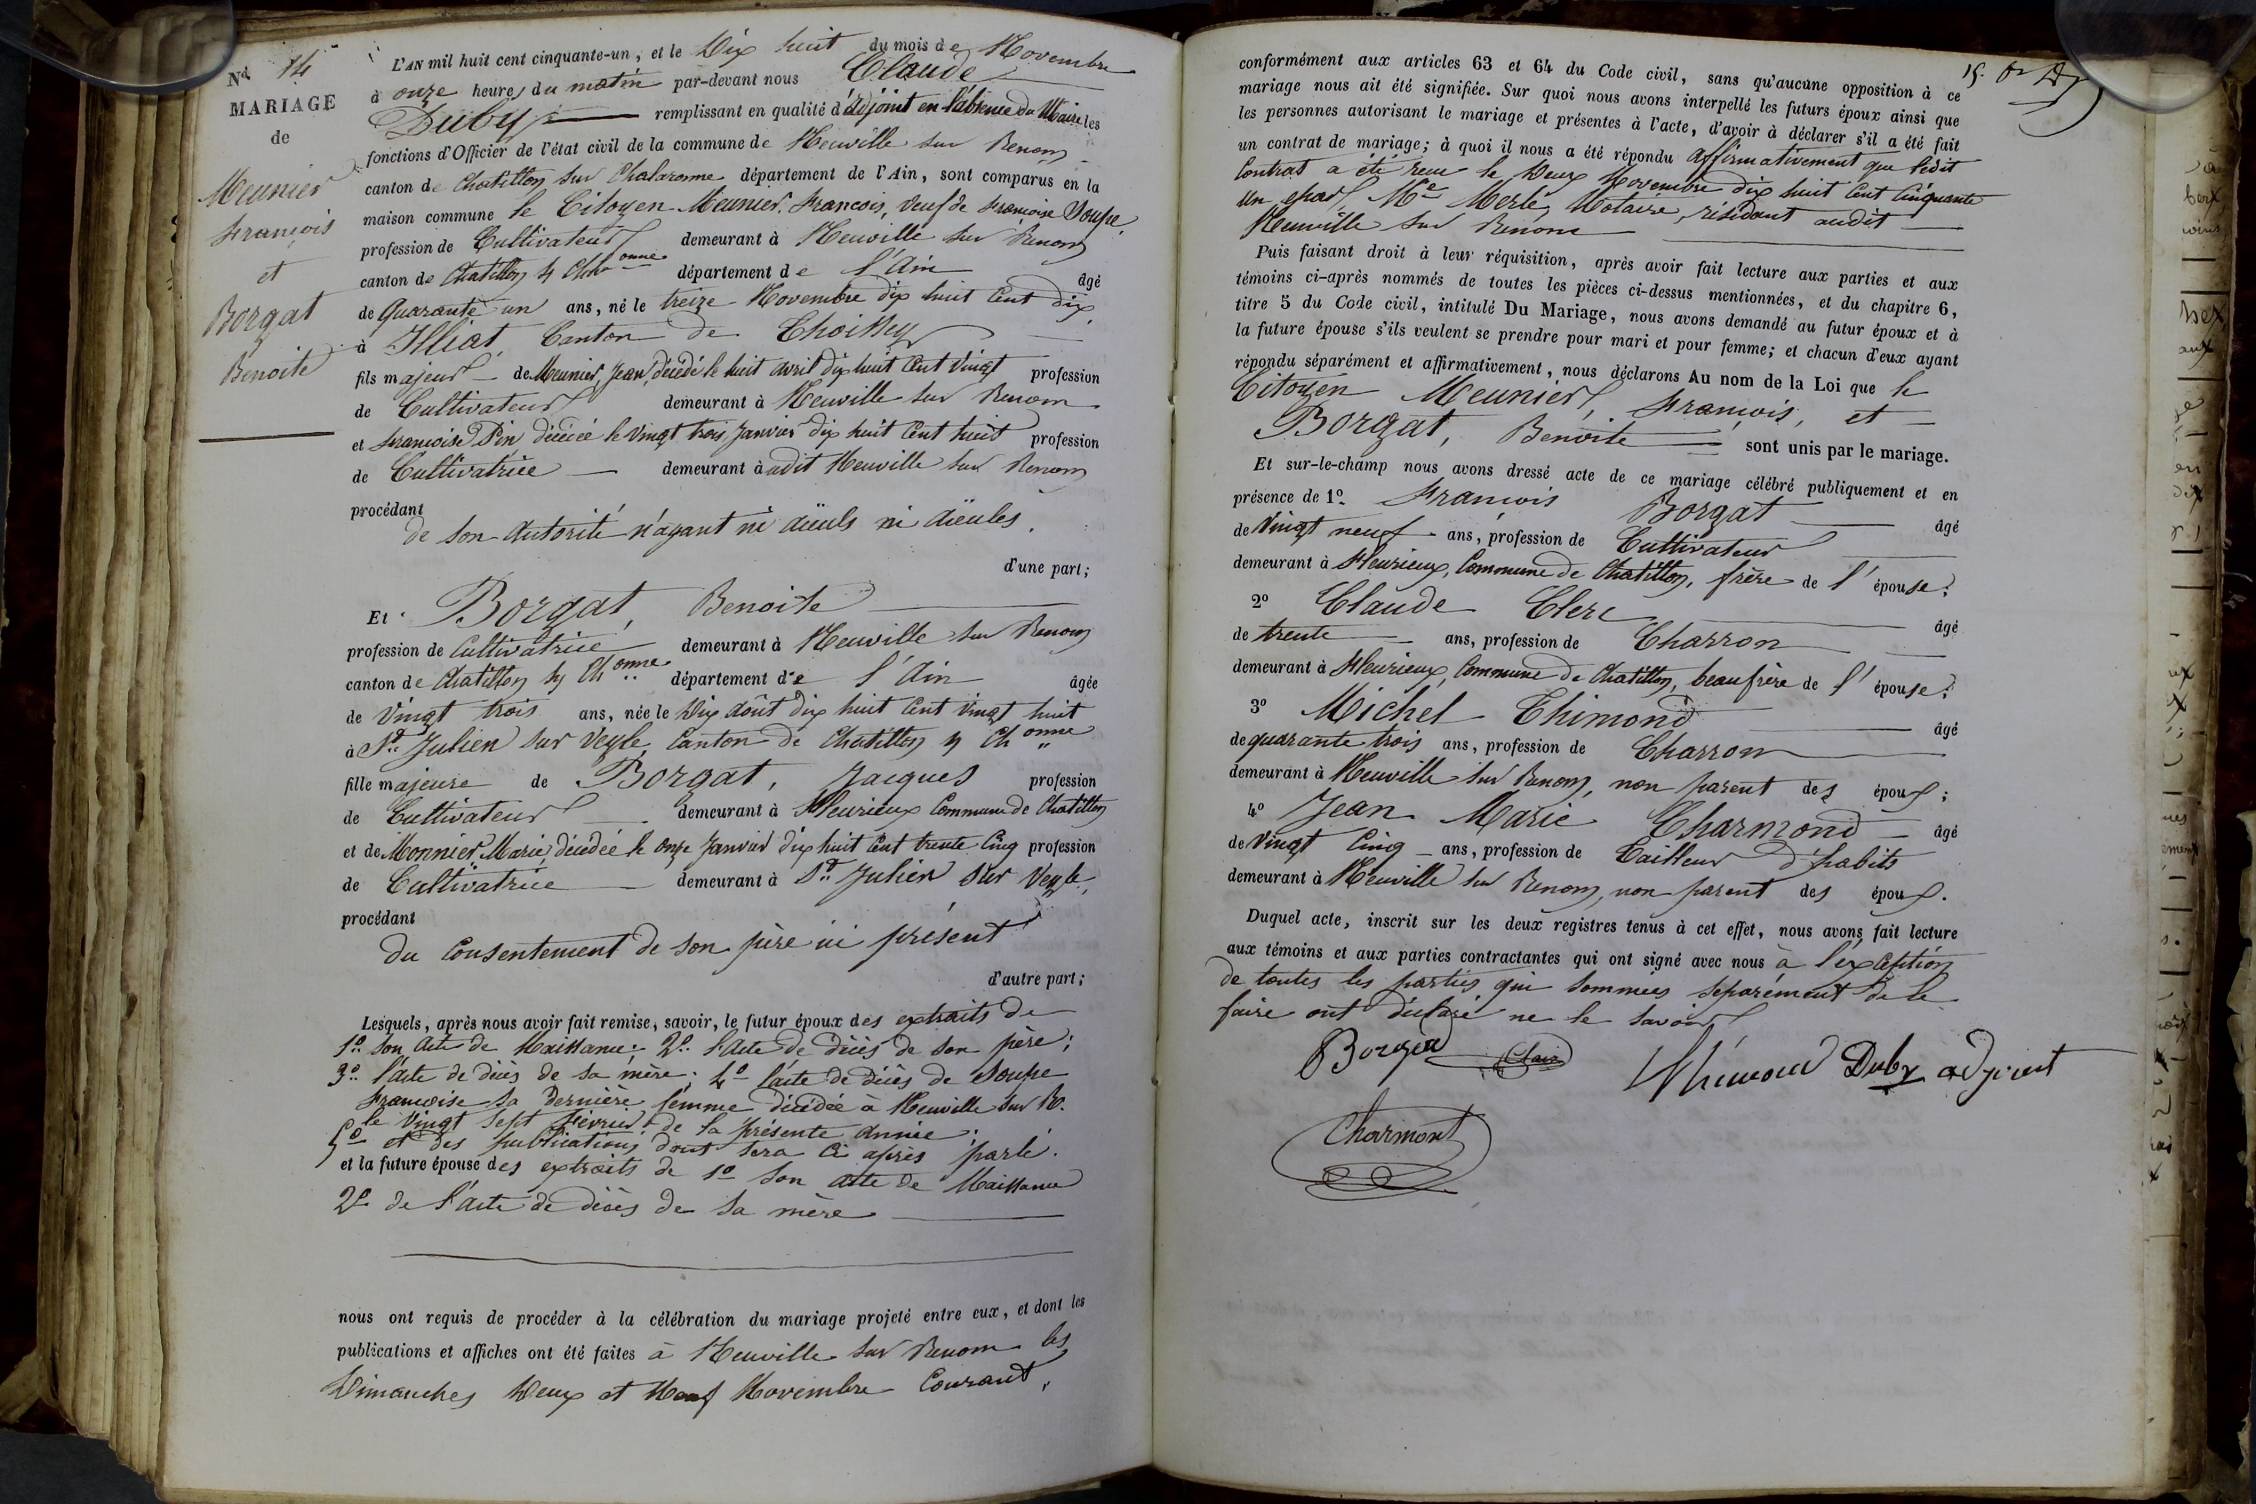 Nº 14
MARIAGE
de
Meunier
François
et
Borgat
Benoite
L'AN mil huit cent cinquante-un, et le Dix huit du mois de Novembre
à onze heures du matin par-devant nous Claude
Duby remplissant en qualité d'adjoint en l'absence du Maire les
fonctions d'Officier de l'état civil de la commune de Neuville sur Renom
canton de Chatillon sur Chalaronne département de l'Ain, sont comparus en la
maison commune le Citoyen Meunier, François, veuf de Françoise Soupe
profession de Cultivateur demeurant à Neuville sur Renom
canton de Chatillon s/ Chonne département de l'Ain âgé
de Quarante un ans, né le treize Novembre dix huit Cent dix
à Illiat Canton de Thoissey
fils majeur de Meunier, Jean, décédé le huit avril dix huit Cent vingt profession
de Cultivateur demeurant à Neuville sur Renom
et Françoise Pin décédée le vingt trois Janvier dix huit Cent huit profession
de Cultivatrice demeurant à udit Neuville sur Renom
procédant
de son autorité n'ayant ni aïeuls ni aïeules.
d'une part;
Et Borgat, Benoite
profession de Cultivatrice demeurant à Neuville sur Renom
canton de Chatillon s/ Chonne département de l'Ain âgée
de vingt trois ans, née le Dix août dix huit Cent vingt huit
à St Julien sur Veyle, Canton de Chatillon s/ Chonne
fille majeure de Borgat, Jacques profession
de Cultivateur demeurant à Fleurieux Commune de Chatillon
et de Monnier Marie, décédée le onze Janvier dix huit Cent trente Cinq profession
de Cultivatrice demeurant à St Julien sur Veyle
procédant
du Consentement de son père ici présent
d'autre part;
Lesquels, après nous avoir fait remise, savoir, le futur époux des extraits de
1º son acte de Naissance; 2º l'acte de décès de son père;
3º l'acte de décès de sa mère; 4º l'acte de décès de Soupe
Françoise sa dernière femme décédée à Neuville sur R.
le vingt sept février de la présente année;
5º et des publications dont sera ci après parlé.
et la future épouse des extraits de 1º son acte de Naissance
2º de l'acte de décès de sa mère
nous ont requis de procéder à la célébration du mariage projeté entre eux, et dont les
publications et affiches ont été faites à Neuville sur Renom les
Dimanches Deux et Neuf Novembre Courant,
15.
conformément aux articles 63 et 64 du Code civil, sans qu'aucune opposition à ce
mariage nous ait été signifiée. Sur quoi nous avons interpellé les futurs époux ainsi que
les personnes autorisant le mariage et présentes à l'acte, d'avoir à déclarer s'il a été fait
un contrat de mariage; à quoi il nous a été répondu affirmativement que ledit
Contrat a été reçu le Deux Novembre dix huit Cent Cinquante
un, par Me Merle, Notaire, résidant audit
Neuville sur Renom
Puis faisant droit à leur réquisition, après avoir fait lecture aux parties et aux
témoins ci-après nommés de toutes les pièces ci-dessus mentionnées, et du chapitre 6,
titre 5 du Code civil, intitulé Du Mariage, nous avons demandé au futur époux et à
la future épouse s'ils veulent se prendre pour mari et pour femme; et chacun d'eux ayant
répondu séparément et affirmativement, nous déclarons Au nom de la Loi que le
Citoyen Meunier, François, et
Borgat, Benoite sont unis par le mariage.
Et sur-le-champ nous avons dressé acte de ce mariage célébré publiquement et en
présence de 1º François Borgat âgé
de vingt neuf ans, profession de Cultivateur
demeurant à Fleurieux, Commune de Chatillon, frère de l'épouse;
2º Claude Clerc âgé
de trente ans, profession de Charron
demeurant à Fleurieux, Commune de Chatillon, beau frère de l'épouse;
3º Michel Thimond âgé
de quarante trois ans, profession de Charron
demeurant à Neuville sur Renom, non parent des époux;
4º Jean Marie Charmond âgé
de vingt Cinq ans, profession de Tailleur d'habits
demeurant à Neuville sur Renom, non parent des époux.
Duquel acte, inscrit sur les deux registres tenus à cet effet, nous avons fait lecture
aux témoins et aux parties contractantes qui ont signé avec nous à l'exception
de toutes les parties qui sommées séparément de le
faire ont déclaré ne le savoir
Borgat Clair Thimond Duby adjoint
Charmont